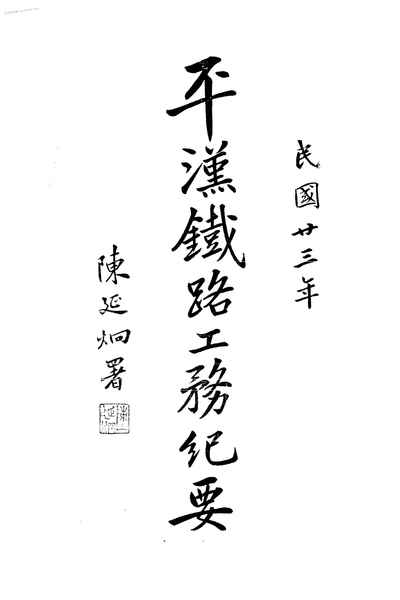 民國廿三年
平漢鐵路工務紀要
陳延炯署